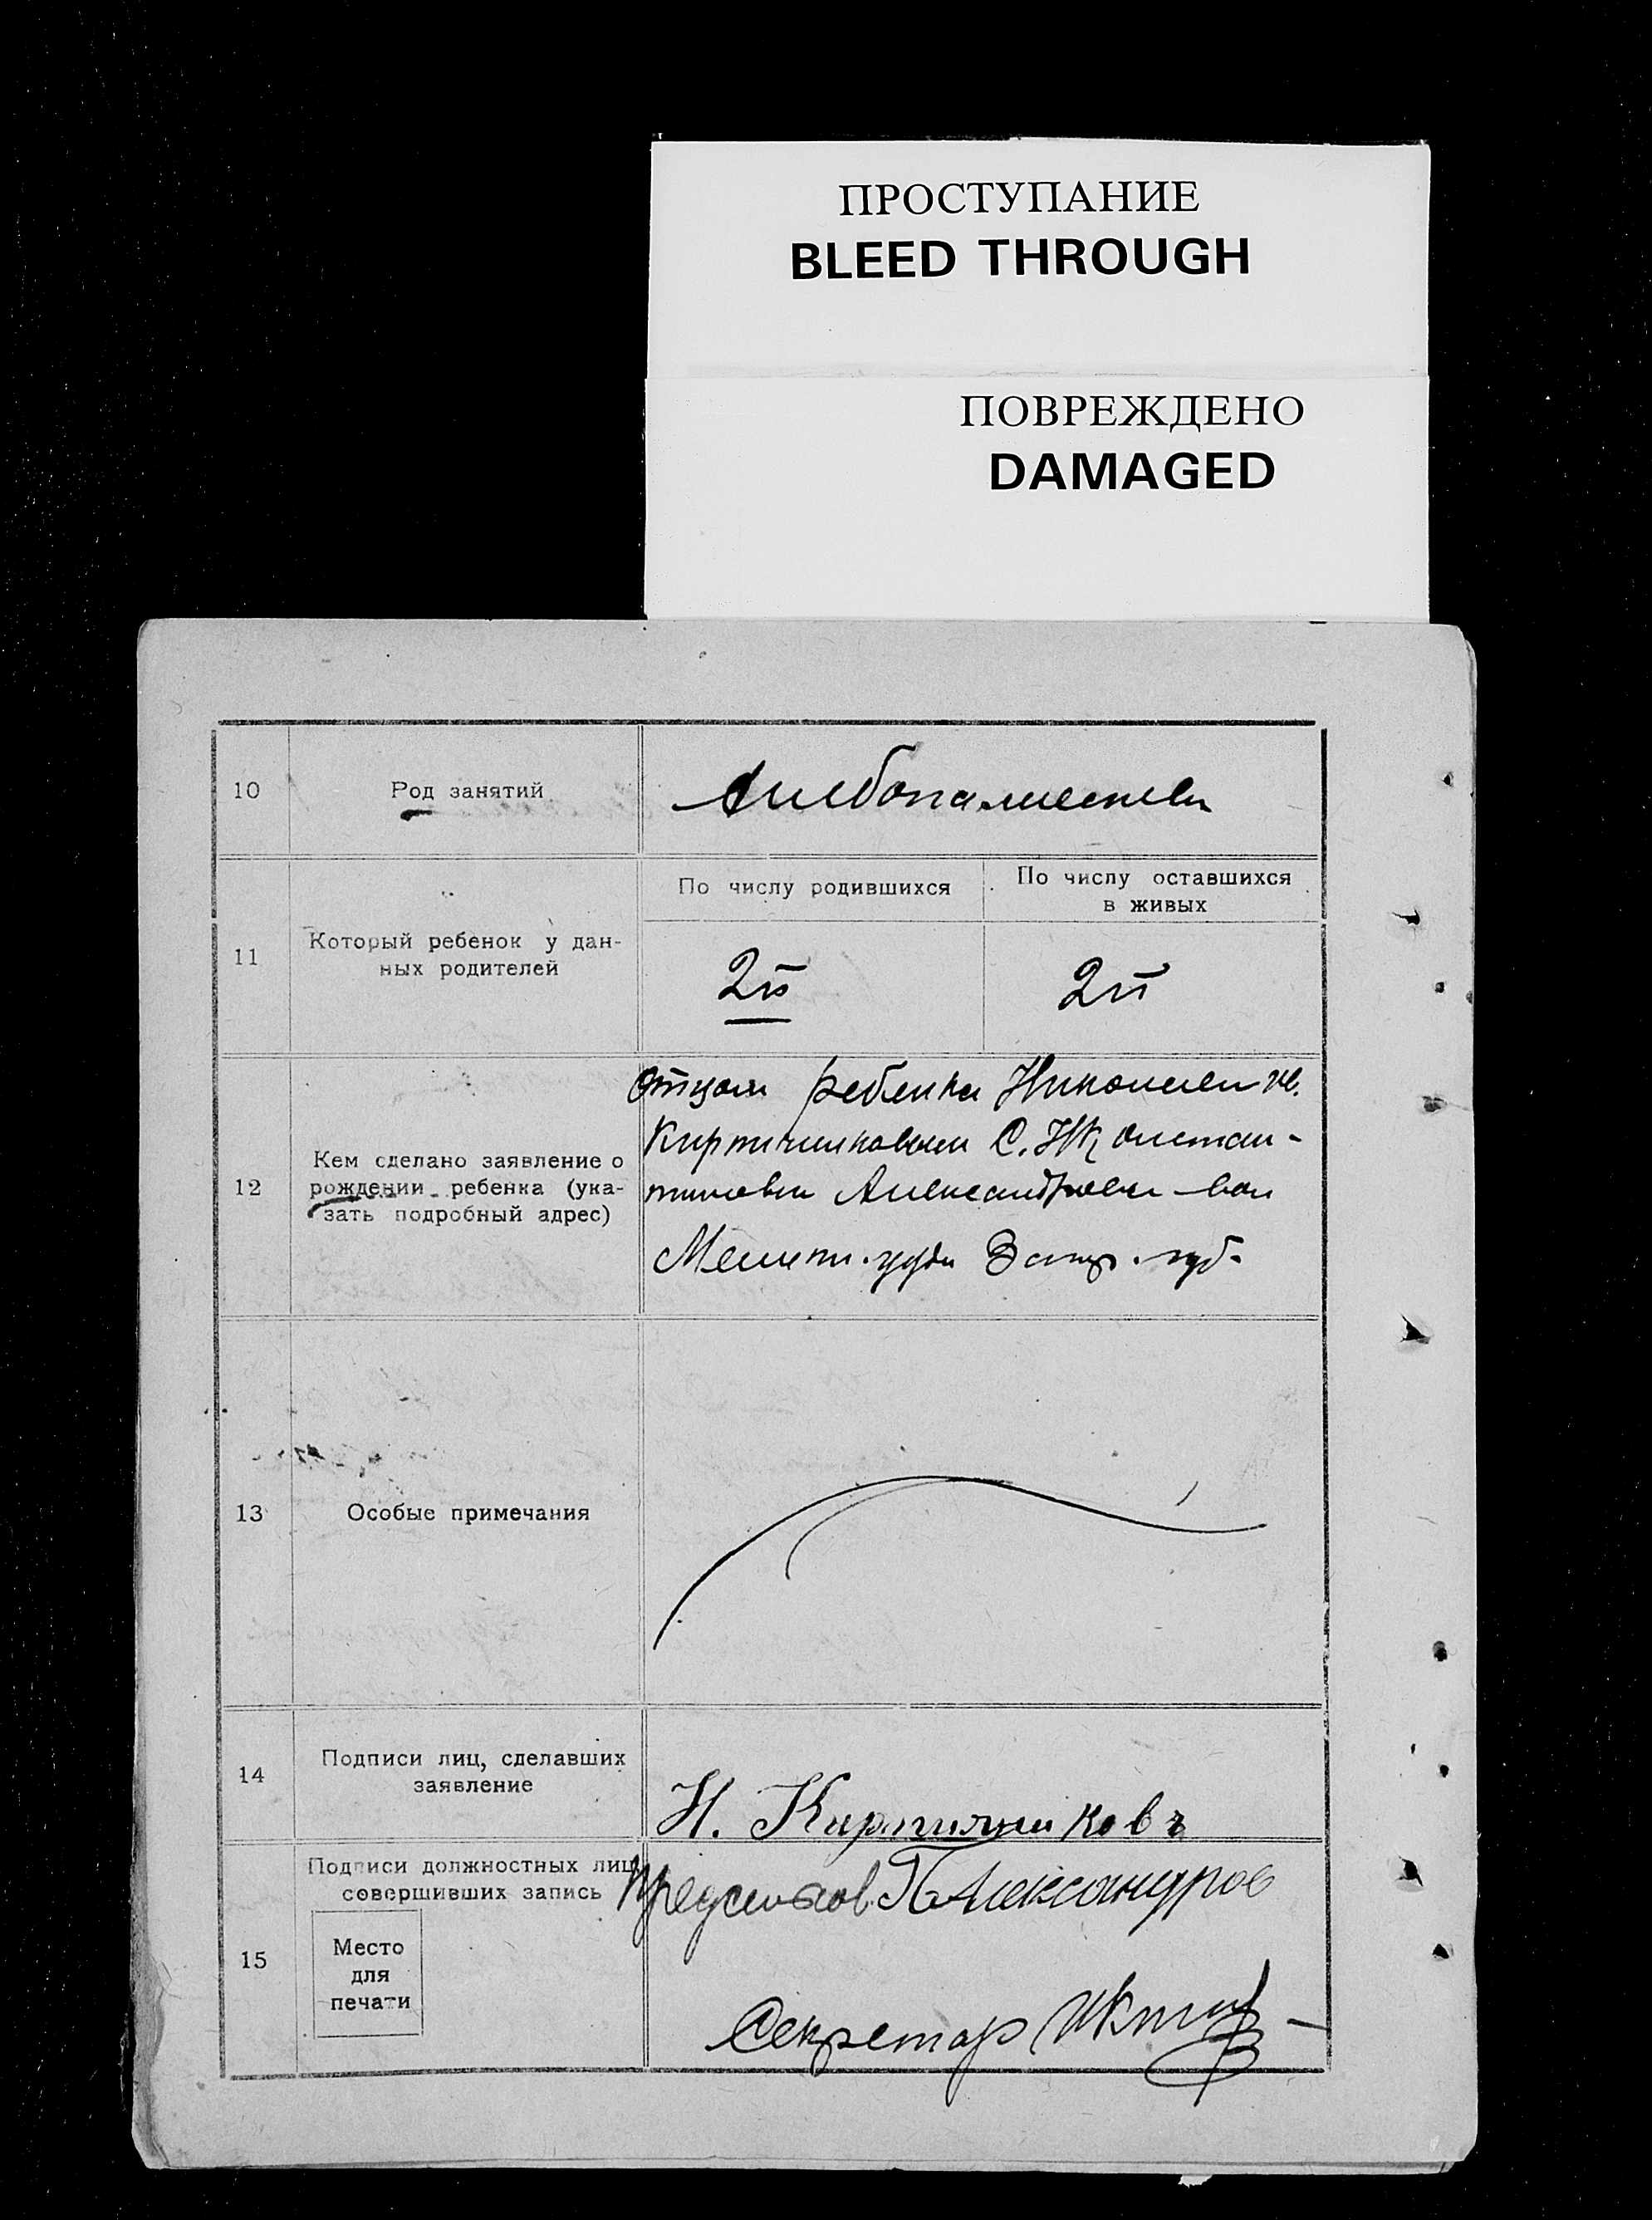 ПРОСТУПАНИЕ
BLEED THROUGH
ПОВРЕЖДЕНО
DAMAGED
10
Род занятий
11
Который ребенок у дан-
ных родителей
По числу родившихся
По числу оставшихся
в живых
2й
2й
12
Кем сделано заявление о
рождении ребенка (ука-
зать подробный адрес)
Отцом ребенка Николаем Ив.
Кирпичниковым С. Констан-
тиновки Александровск вол
Мелит. уезда Запор. губ.
13
Особые примечания
14
Подписи лиц, сделавших
заявление
Н. Кирпичниковъ
15
Подписи должностных лиц
совершивших запись
Место
для
печати
П Александров
Секретар